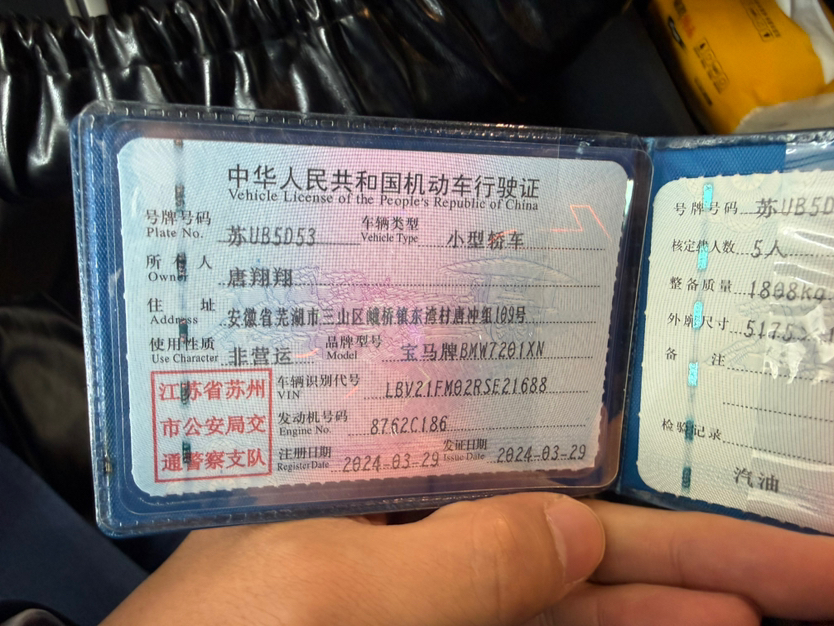 中华人民共和国机动车行驶证
Vehicle License of the People's Republic of China
号牌号码 苏UB5D53 车辆类型 小型轿车
Plate No. Vehicle Type
所有人 唐翔翔
Owner
住址 安徽省芜湖市三山区峨桥镇东湾村唐冲组109号
Address
使用性质 非营运 品牌型号 宝马牌BMW7201XN
Use Character Model
江苏省苏州
市公安局交
通警察支队
车辆识别代号 LBV21FM02RSE21688
VIN
发动机号码 8762C186
Engine No.
注册日期 2024-03-29 发证日期 2024-03-29
Register Date Issue Date
号牌号码 苏UB5D
核定载人数 5人
整备质量 1808kg
外廓尺寸 5175×
备注
检验记录
汽油